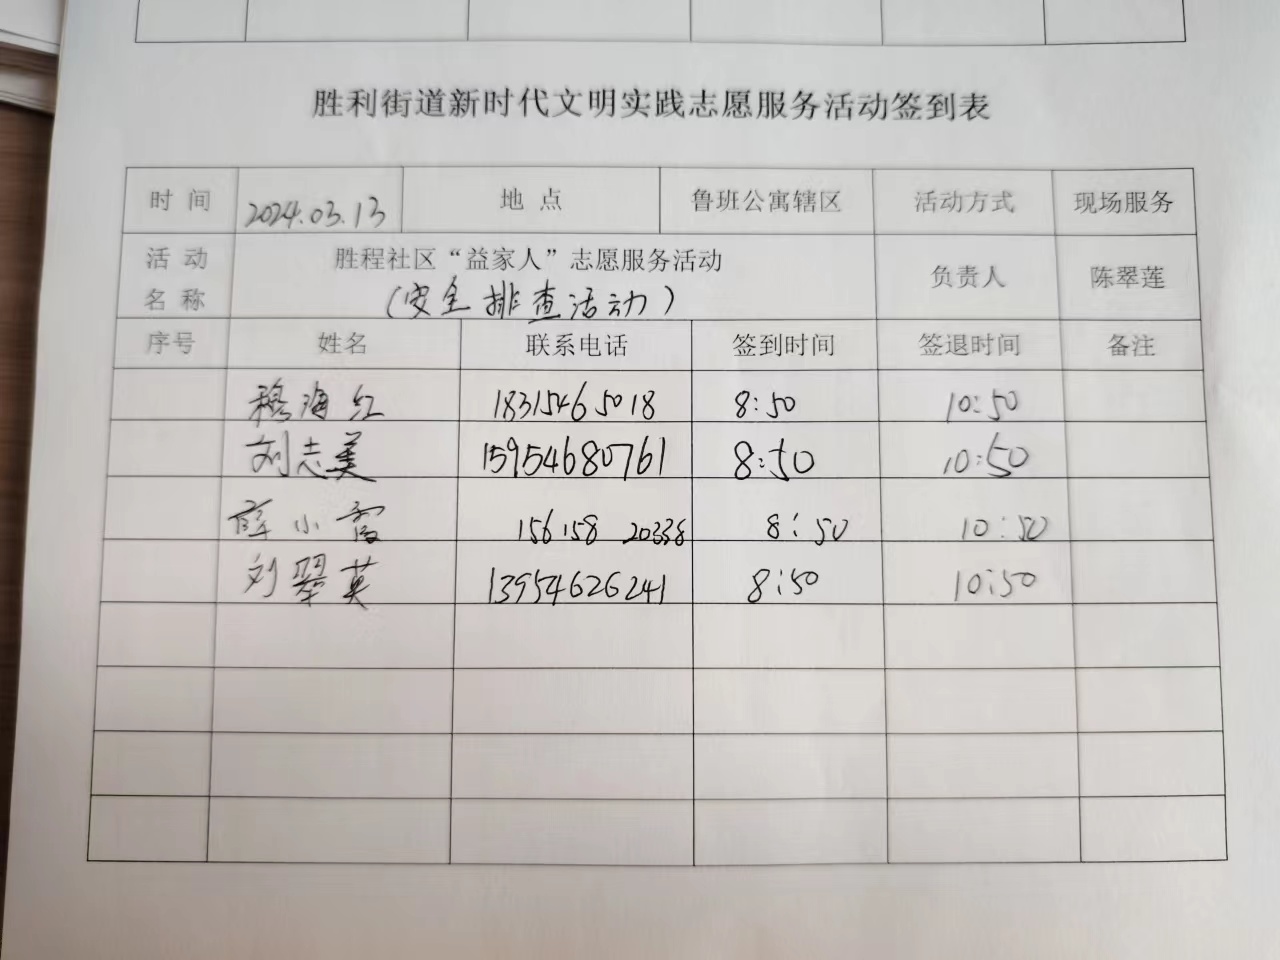 胜利街道新时代文明实践志愿服务活动签到表
时 间 2024.03.13 地 点 鲁班公寓辖区 活动方式 现场服务
活 动 名 称 胜程社区“益家人”志愿服务活动 负责人 陈翠莲
(安全排查活动)
序号 姓名 联系电话 签到时间 签退时间 备注
穆海红 18315465018 8:50 10:50
刘志美 15954680761 8:50 10:50
薛小霞 156158 20338 8:50 10:50
刘翠英 13954626241 8:50 10:50